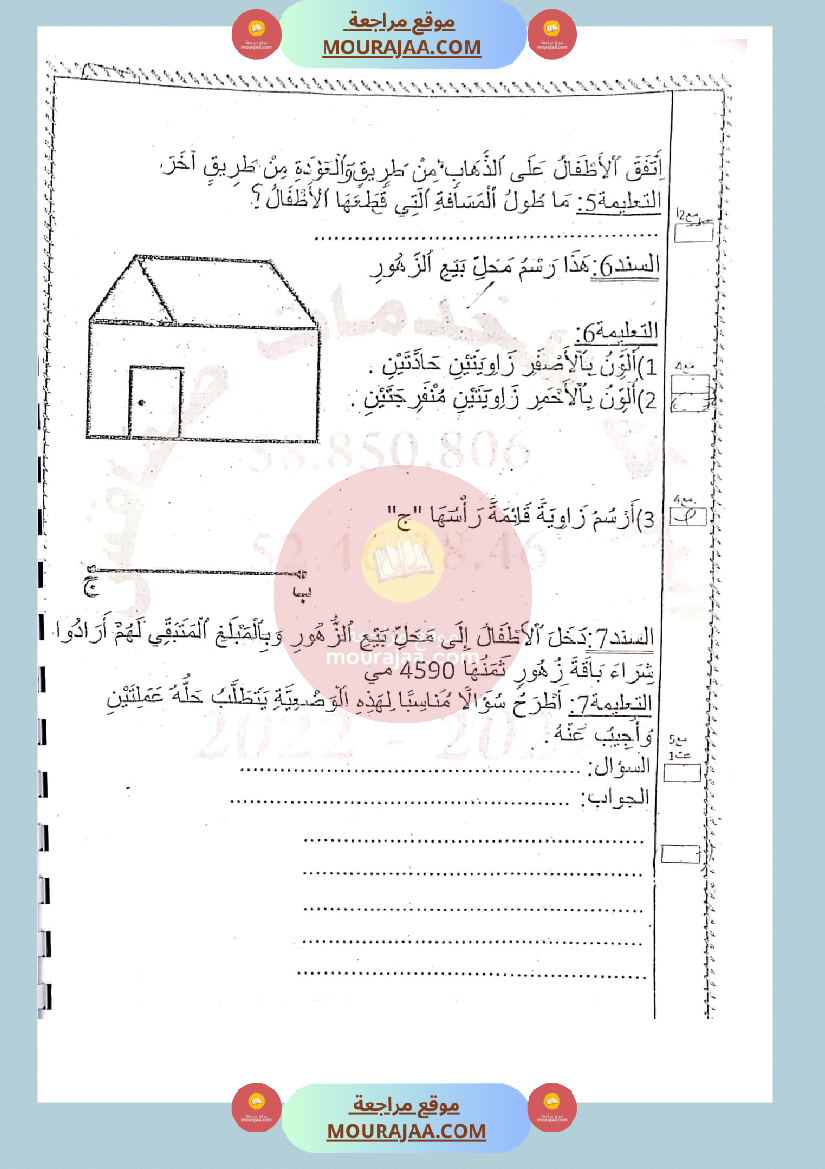 موقع مراجعة
MOURAJAA.COM
اِتَّفَقَ الْأَطْفَالُ عَلَى الذَّهَابِ مِنْ طَرِيقٍ وَالْعَوْدَةِ مِنْ طَرِيقٍ آخَرَ.
التعليمة5: مَا طُولُ الْمَسَافَةِ الَّتِي قَطَعَهَا الْأَطْفَالُ؟
مع2
السند6: هَذَا رَسْمُ مَحِلِّ بَيْعِ الزُّهُورِ
التعليمة6:
1)أُلَوِّنُ بِالْأَصْفَرِ زَاوِيَتَيْنِ حَادَّتَيْنِ .
مع4
2)أُلَوِّنُ بِالْأَحْمَرِ زَاوِيَتَيْنِ مُنْفَرِجَتَيْنِ .
58.850.806
3)أَرْسُمُ زَاوِيَةً قَائِمَةً رَأْسُهَا "ج"
مع4
ج ب
السند7: دَخَلَ الْأَطْفَالُ إِلَى مَحَلِّ بَيْعِ الزُّهُورِ وَبِالْمَبْلَغِ الْمُتَبَقِّي لَهُمْ أَرَادُوا
موقع مراجعة
mourajaa.com
شِرَاءَ بَاقَةَ زُهُورٍ ثَمَنُهَا 4590 مي
التعليمة7: أَطْرَحُ سُؤَالًا مُنَاسِبًا لِهَذِهِ الْوَضْعِيَّةِ يَتَطَلَّبُ حَلُّهُ عَمَلِيَّتَيْنِ
وَأُجِيبُ عَنْهُ .
مع5
السؤال:
الجواب:
موقع مراجعة
MOURAJAA.COM